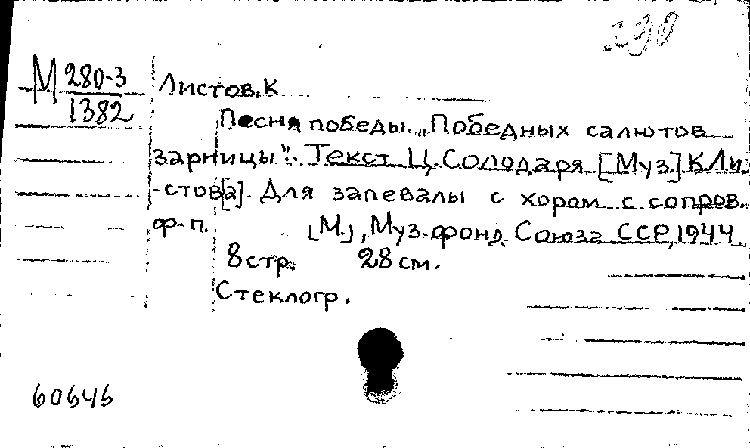 290
М 280-3
1382
Листов, К
Песня победы. „Победных салютов
зарницы“. Текст Ц. Солодаря [Муз] К Ли-
-стов[а]. Для запевалы с хором с сопров.
ф-п. [М.], Муз. фонд Союза ССР, 1944
8 стр. 28 см.
Стеклогр.